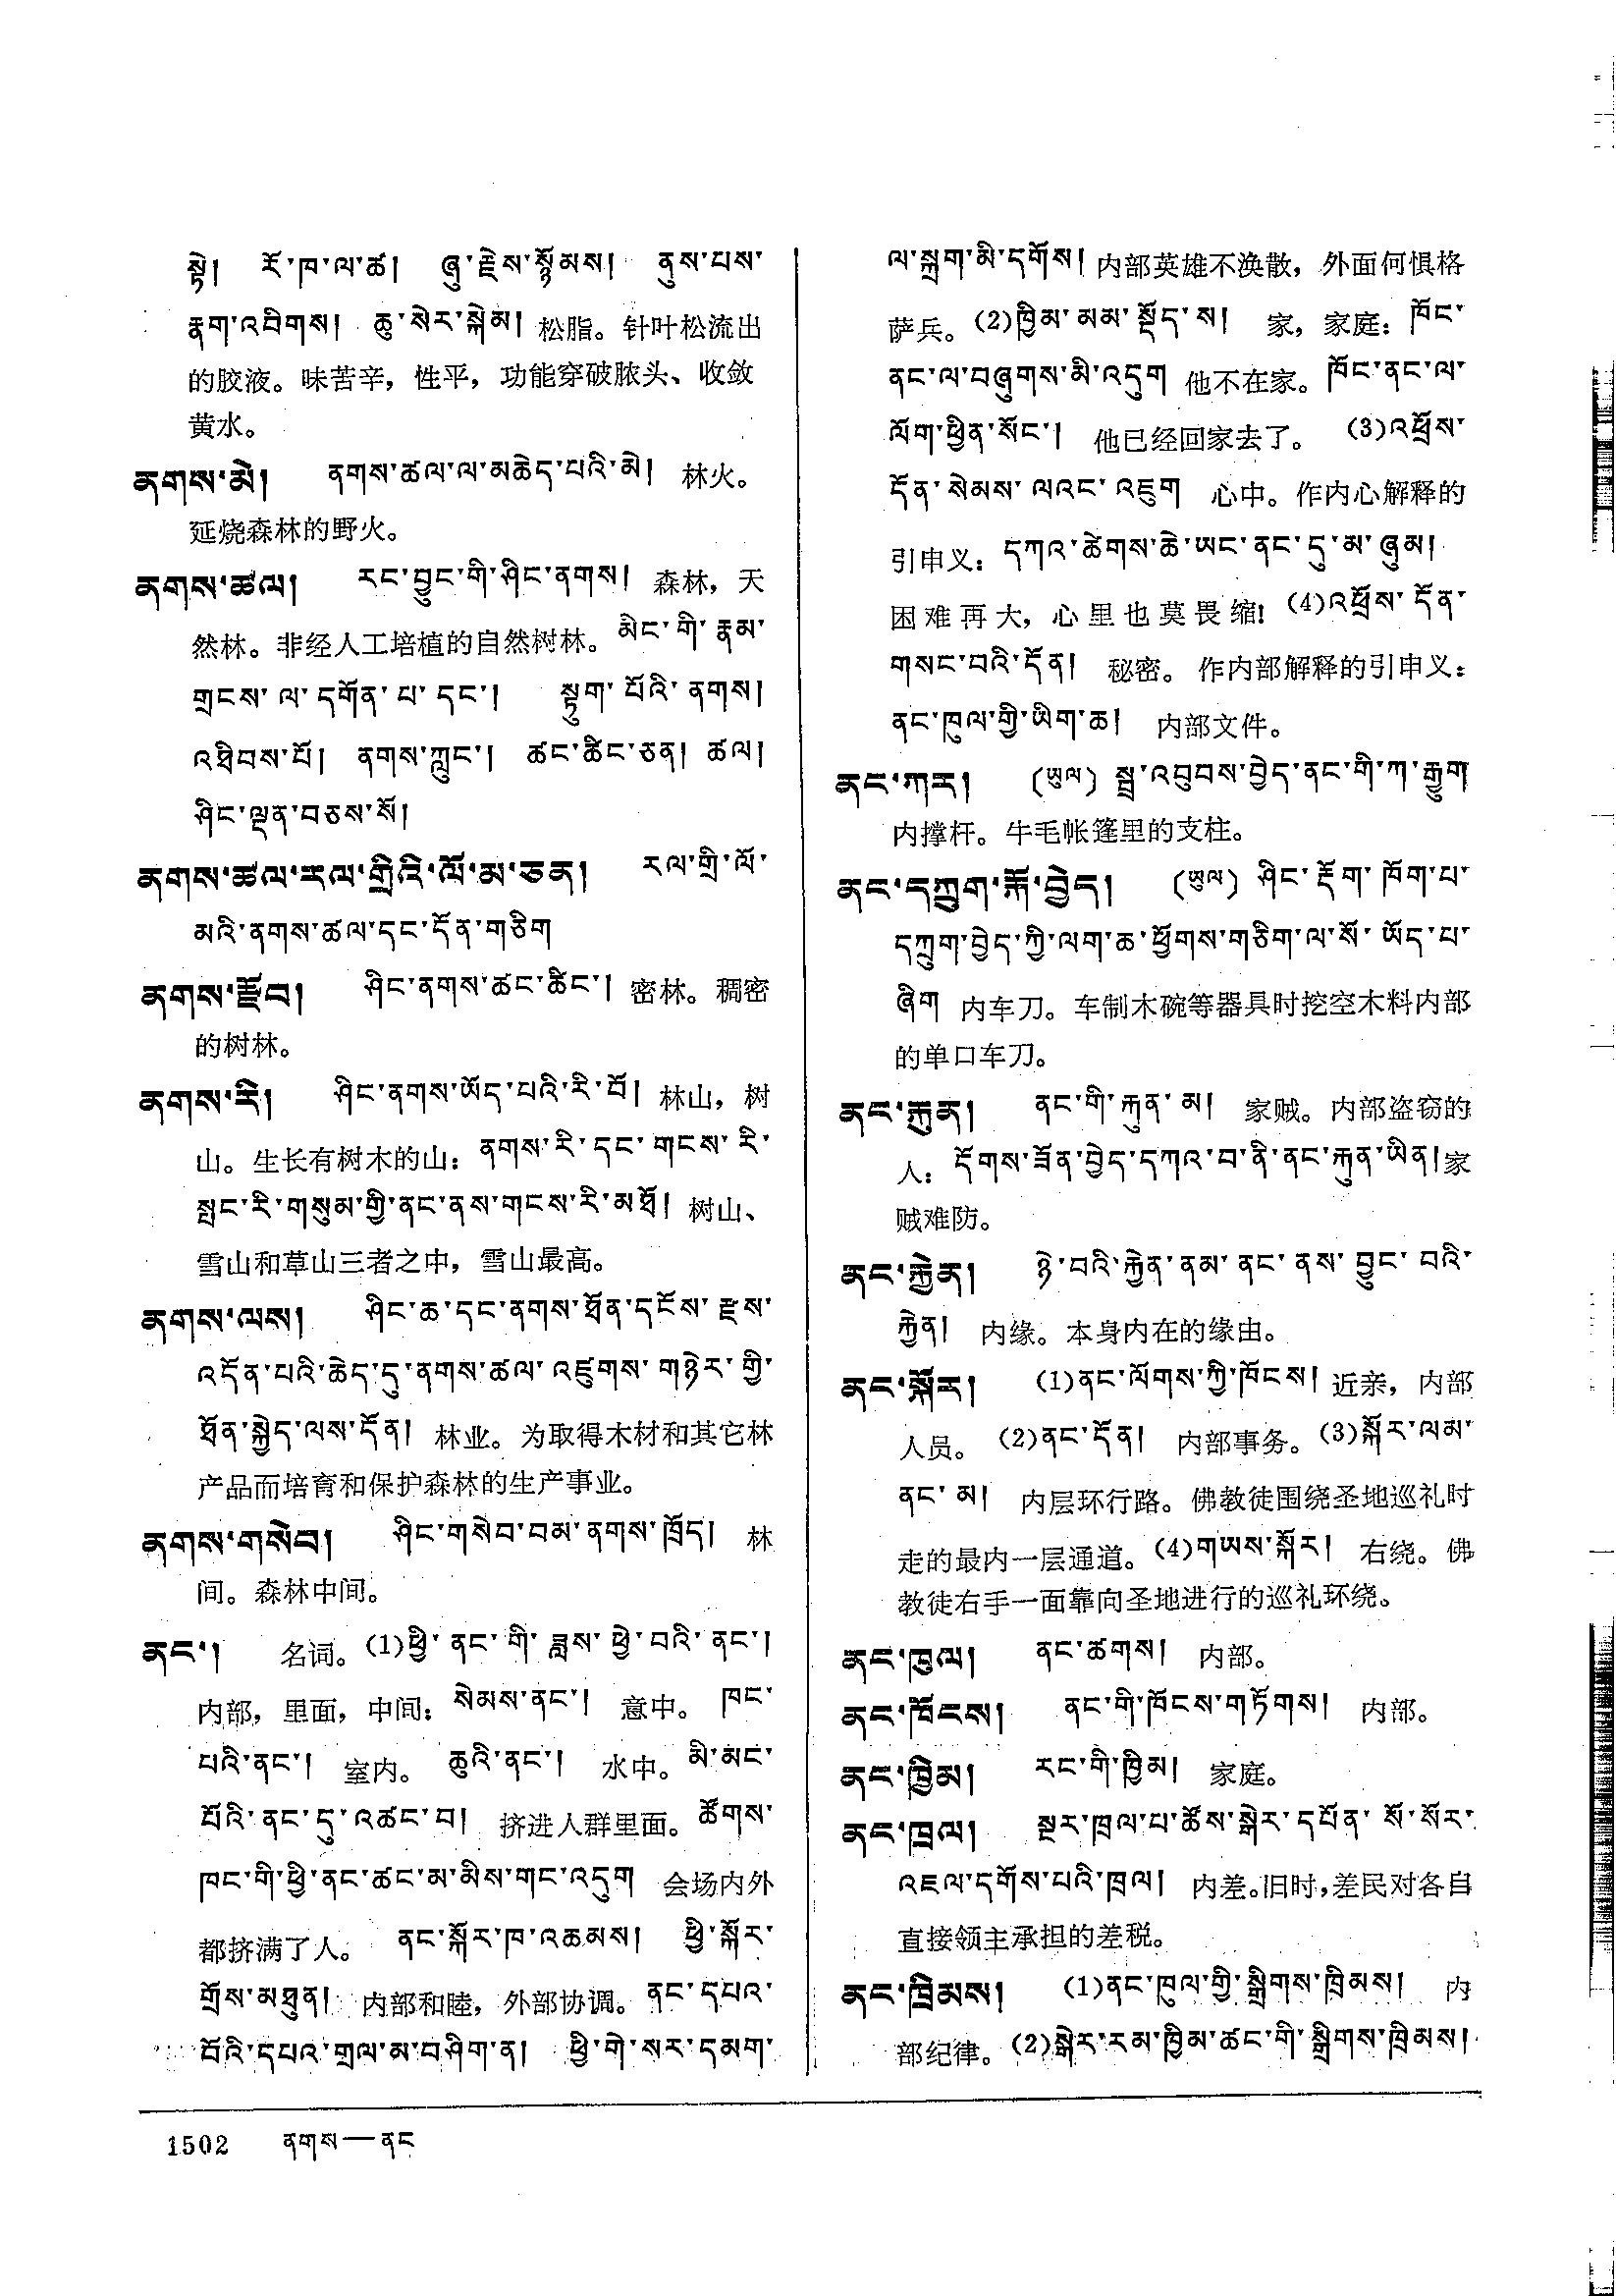 སྟེ། རོ་ཁ་ལ་ཚ། ཞུ་རྗེས་སྙོམས། ནུས་པས་
རྣག་འབིགས། ཆུ་སེར་སྐེམ། 松脂。针叶松流出
的胶液。味苦辛，性平，功能穿破脓头、收敛
黄水。
ནགས་མེ། ནགས་ཚལ་ལ་མཆེད་པའི་མེ། 林火。
延烧森林的野火。
ནགས་ཚལ། རང་བྱུང་གི་ཤིང་ནགས། 森林，天
然林。非经人工培植的自然树林。མིང་གི་རྣམ་
གྲངས་ལ་དགོན་པ་དང་། སྟུག་པོའི་ནགས།
འཐིབས་པོ། ནགས་ཀླུང་། ཚང་ཚིང་ཅན། ཚལ།
ཤིང་ལྡན་བཅས་སོ།
ནགས་ཚལ་རལ་གྲིའི་ལོ་མ་ཅན། རལ་གྲི་ལོ་
མའི་ནགས་ཚལ་དང་དོན་གཅིག
ནགས་རྫོབ། ཤིང་ནགས་ཚང་ཚིང་། 密林。稠密
的树林。
ནགས་རི། ཤིང་ནགས་ཡོད་པའི་རི་བོ། 林山，树
山。生长有树木的山：ནགས་རི་དང་གངས་རི་
སྤང་རི་གསུམ་གྱི་ནང་ནས་གངས་རི་མཐོ། 树山、
雪山和草山三者之中，雪山最高。
ནགས་ལས། ཤིང་ཆ་དང་ནགས་ཐོན་དངོས་རྫས་
འདོན་པའི་ཆེད་དུ་ནགས་ཚལ་འཛུགས་གཉེར་གྱི་
ཐོན་སྐྱེད་ལས་དོན། 林业。为取得木材和其它林
产品而培育和保护森林的生产事业。
ནགས་གསེབ། ཤིང་གསེབ་བམ་ནགས་ཁྲོད། 林
间。森林中间。
ནང་། 名词。(1)ཕྱི་ནང་གི་ཟླས་ཕྱེ་བའི་ནང་།
内部，里面，中间：སེམས་ནང་། 意中。 ཁང་
པའི་ནང་། 室内。 ཆུའི་ནང་། 水中。མི་མང་
པོའི་ནང་དུ་འཚང་བ། 挤进人群里面。ཚོགས་
ཁང་གི་ཕྱི་ནང་ཚང་མ་མིས་གང་འདུག 会场内外
都挤满了人。 ནང་སྐོར་ཁ་འཆམས། ཕྱི་སྐོར་
གྲོས་མཐུན། 内部和睦，外部协调。ནང་དཔའ་
བོའི་དཔའ་གྲལ་མ་བཤིག་ན། ཕྱི་གེ་སར་དམག་
ལ་སྐྲག་མི་དགོས། 内部英雄不涣散，外面何惧格
萨兵。(2)ཁྱིམ་མམ་སྡོད་ས། 家，家庭：ཁོང་
ནང་ལ་བཞུགས་མི་འདུག 他不在家。ཁོང་ནང་ལ་
ལོག་ཕྱིན་སོང་། 他已经回家去了。 (3)འཕྲོས་
དོན་སེམས་ལའང་འཇུག 心中。作内心解释的
引申义：དཀའ་ཚེགས་ཆེ་ཡང་ནང་དུ་མ་ཞུམ།
困难再大，心里也莫畏缩！(4)འཕྲོས་དོན་
གསང་བའི་དོན། 秘密。作内部解释的引申义：
ནང་ཁུལ་གྱི་ཡིག་ཆ། 内部文件。
ནང་ཀར། (ཡུལ) སྦྲ་འབུབས་བྱེད་ནང་གི་ཀ་རྒྱུག
内撑杆。牛毛帐篷里的支柱。
ནང་དཀྲུག་རྐོ་བྱེད། (ཡུལ) ཤིང་རྡོག་ཁོག་པ་
དཀྲུག་བྱེད་ཀྱི་ལག་ཆ་ཕྱོགས་གཅིག་ལ་སོ་ཡོད་པ་
ཞིག 内车刀。车制木碗等器具时挖空木料内部
的单口车刀。
ནང་རྐུན། ནང་གི་རྐུན་མ། 家贼。内部盗窃的
人：དོགས་ཟོན་བྱེད་དཀའ་བ་ནི་ནང་རྐུན་ཡིན། 家
贼难防。
ནང་རྐྱེན། ཉེ་བའི་རྐྱེན་ནམ་ནང་ནས་བྱུང་བའི་
རྐྱེན། 内缘。本身内在的缘由。
ནང་སྐོར། (1)ནང་ལོགས་ཀྱི་ཁོངས། 近亲，内部
人员。 (2)ནང་དོན། 内部事务。(3)སྐོར་ལམ་
ནང་མ། 内层环行路。佛教徒围绕圣地巡礼时
走的最内一层通道。(4)གཡས་སྐོར། 右绕。佛
教徒右手一面靠向圣地进行的巡礼环绕。
ནང་ཁུལ། ནང་ཚགས། 内部。
ནང་ཁོངས། ནང་གི་ཁོངས་གཏོགས། 内部。
ནང་ཁྱིམ། རང་གི་ཁྱིམ། 家庭。
ནང་ཁྲལ། སྔར་ཁྲལ་པ་ཚོས་སྒེར་དཔོན་སོ་སོར་
འཇལ་དགོས་པའི་ཁྲལ། 内差。旧时，差民对各自
直接领主承担的差税。
ནང་ཁྲིམས། (1)ནང་ཁུལ་གྱི་སྒྲིགས་ཁྲིམས། 内
部纪律。(2)སྒེར་རམ་ཁྱིམ་ཚང་གི་སྒྲིགས་ཁྲིམས།
1502 ནགས—ནང